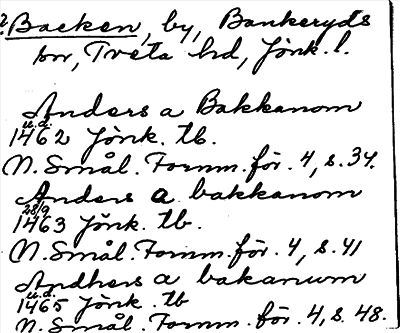 2. Backen, by, Bankeryds
sn, Tveta hd, Jönk. l.
Anders a Bakkanom
u.d.
1462 Jönk. tb.
N. Smål. Fornm. för. 4, s. 34.
Anders a bakkanom
28/9
1463 Jönk. tb.
N. Smål. Fornm. för. 4, s. 41
Andhers a bakanum
u.d.
1465 Jönk. tb
N. Smål. Fornm. för. 4, s. 48.